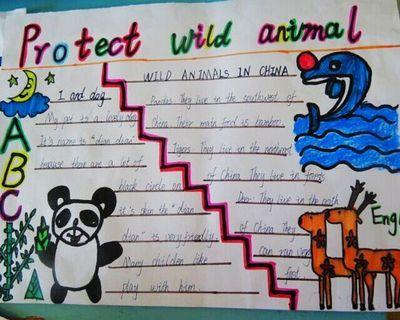 Protect wild animal
ABC
I and dog
My pet is a lovely dog
It's name is "dian dian"
because there are a lot of
black circle on
it's skin the "dian
dian" is very friendly
Many children like
play with him.
WILD ANIMALS IN CHINA
Pandas They live in the southwest of
China. Their main food is bamboo.
Tigers They live in the northeast
of China They live in forests
Deer They live in the north
of China They
can run very
fast
Engl